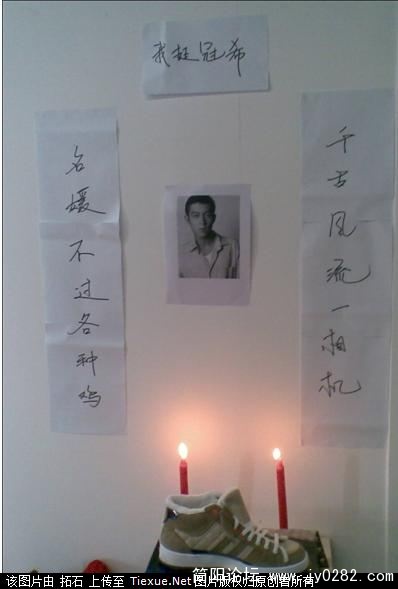 我挺冠希
千古风流一相机
名媛不过各种鸡
简阳论坛 www.jy0282.com
该图片由 拓石 上传至 Tiexue.Net 图片版权归原创者所有